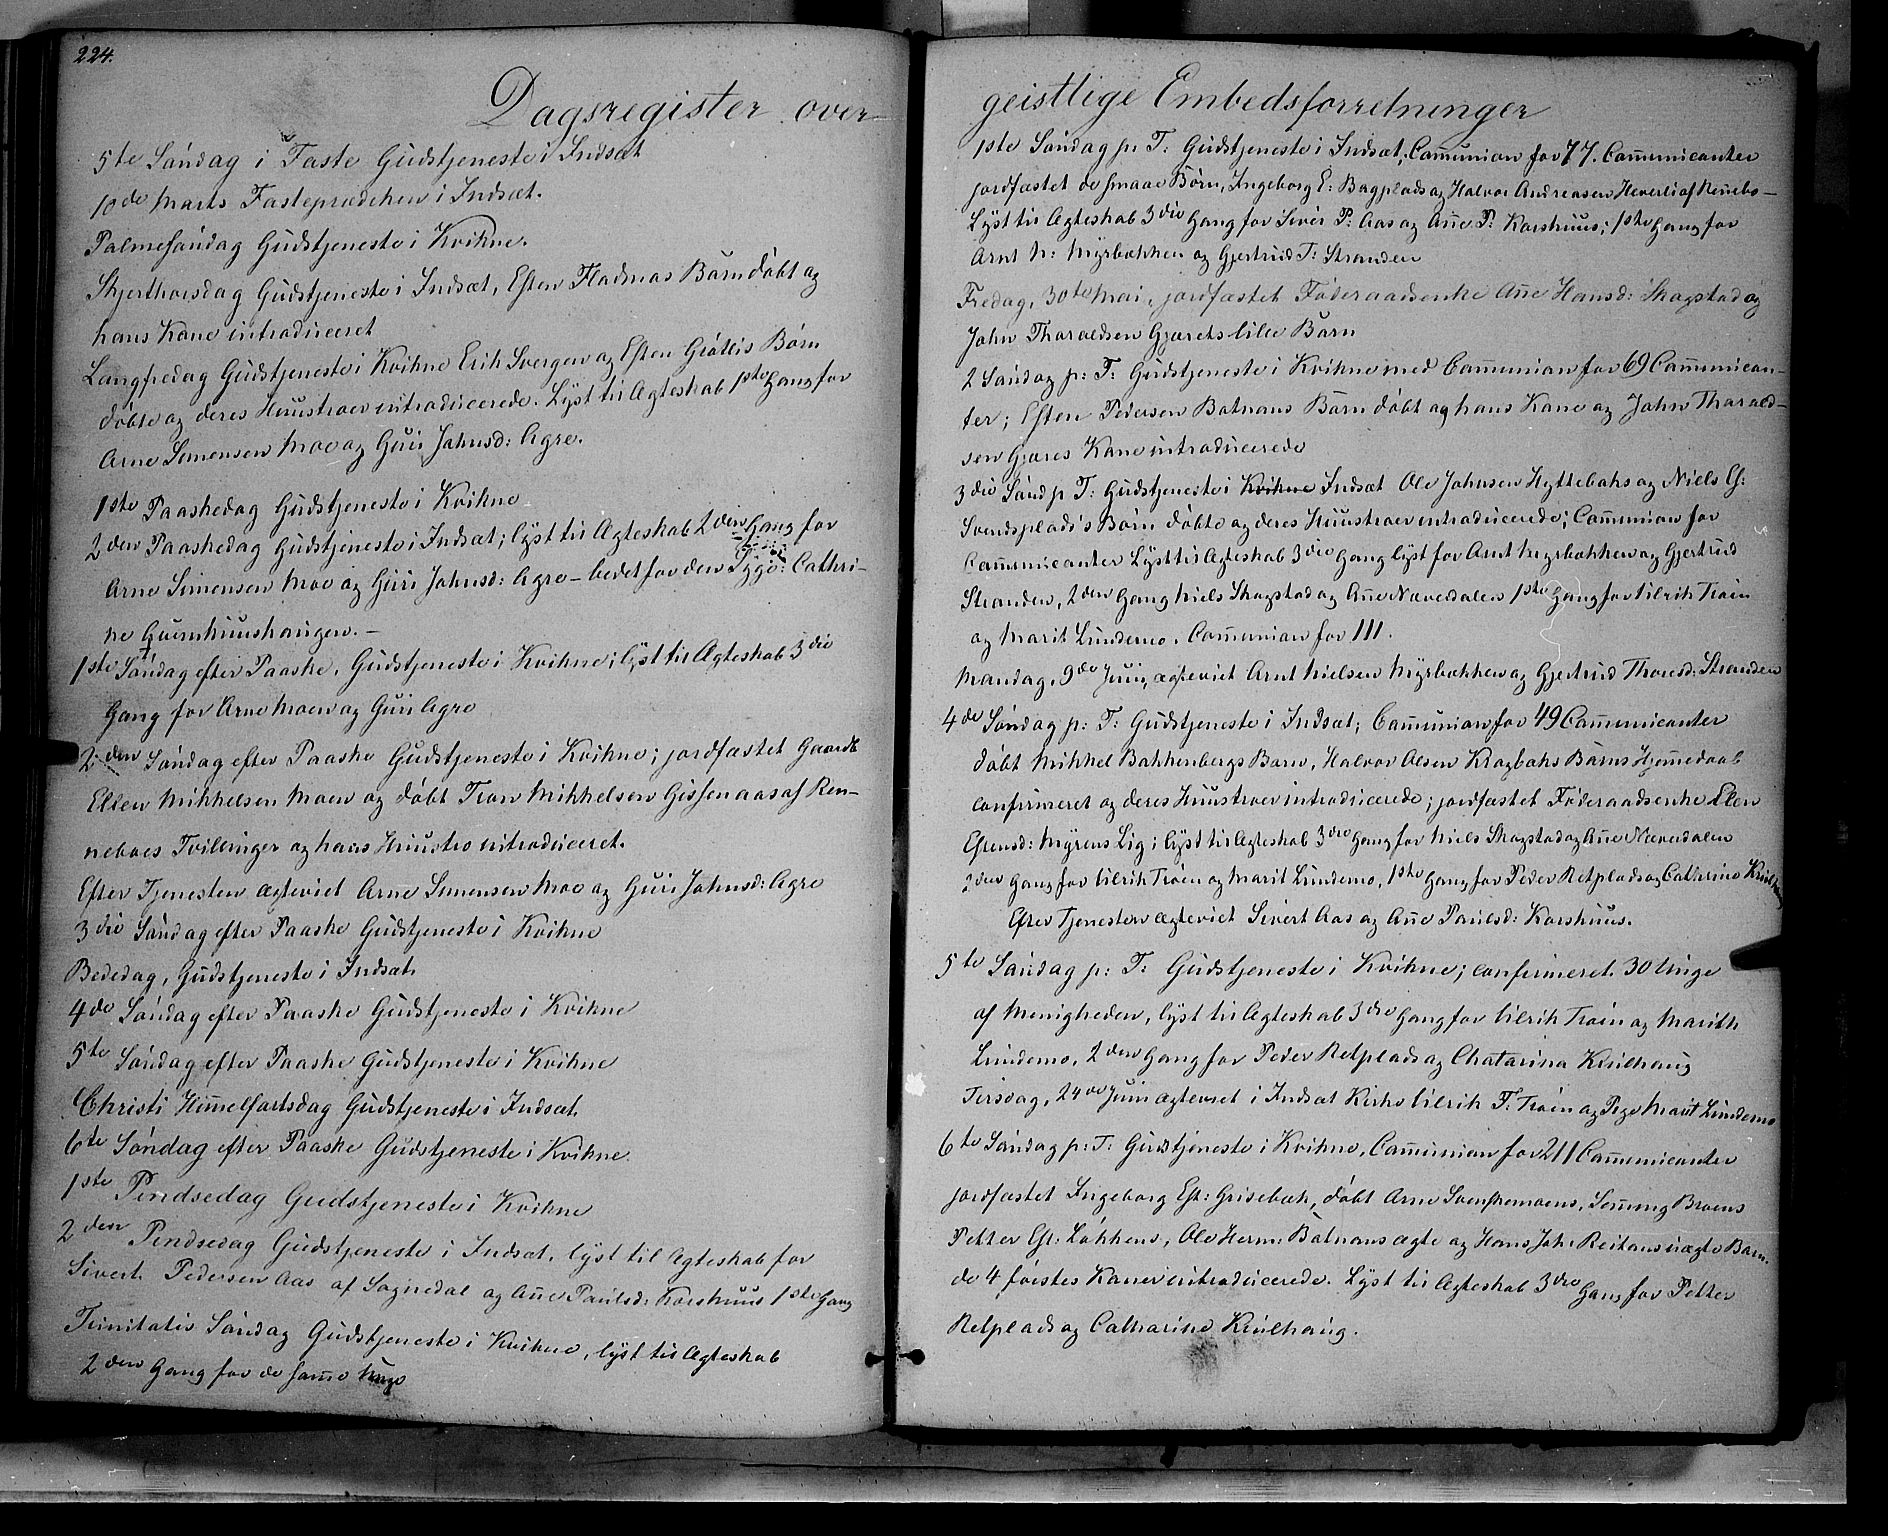 224.
Dagsregister over
5te Søndag i Faste Gudstjeneste i Indsæt
10de Marts Fasteprædiken i Indsæt.
Palmesøndag Gudstjeneste i Kvikne.
Skjærthorsdag Gudstjeneste i Indsæt, Esten Fladmas Barn døbt og
hans Kone introduceret
Langfredag Gudstjeneste i Kvikne Erik Svergen og Esten Børn
døbte og deres Huustroer introducerede. Lyst til Ægteskab 1ste Gang for
Arne Simensen Moe og Guri Johnsd: Agre.
1ste Paaskedag Gudstjeneste i Kvikne
2den Paaskedag Gudstjeneste i Indsæt; lyst til Ægteskab 2den Gang for
Arne Simensen Moe og Guri Johnsd: Agre – bedet for den Syge: Cathri-
ne
1ste Søndag efter Paaske, Gudstjeneste i Kvikne; lyst til Ægteskab 3die
Gang for Arne Moen og Guri Agre
2den Søndag efter Paaske Gudstjeneste i Kvikne; jordfæstet Gaardb
Ellen Mikkelsen Moen og døbt Tron Mikkelsen Gissenaas af Ren-
neboes Tvillinger og hans Huustro introduceret.
Efter Tjenesten ægteviet Arne Simensen Moe og Guri Johnsd: Agre
3die Søndag efter Paaske Gudstjeneste i Kvikne
Bededag, Gudstjeneste i Indsæt.
4de Søndag efter Paaske Gudstjeneste i Kvikne
5te Søndag efter Paaske Gudstjeneste i Kvikne
Christi Him̅elfartsdag Gudstjeneste i Indsæt.
6te Søndag efter Paaske Gudstjeneste i Kvikne.
1ste Pindsedag Gudstjeneste i Kvikne
2den Pindsedag Gudstjeneste i Indsæt, lyst til Ægteskab for
Sivert Pedersen Aas af Sognedal og An̅e Paulsd: Korshuus 1ste Gang
Trinitatis Søndag Gudstjeneste i Kvikne, lyst til Ægteskab
2den Gang for de sam̅e Unge
geistlige Embedsforretninger
1ste Søndag p: T: Gudstjeneste i Indsæt, Com̅union for 77. Com̅unicanter
jordfæstet de smaae Børn, Ingeborg E: Bagplads og Halvor Andreasen Heverli af Ren̅ebo –
Lyst til Ægteskab 3die Gang for Siver P: Aas og An̅e P: Korshuus; 1ste Gang for
Arnt N: Myrbækken og Gjertrud T: Stranden
Fredag, 30te Mai, jordfæstet Føderaadsenke An̅e Hansd: Skogstad og
John Tharaldsen Gjærets lille Barn
2 Søndag p: T: Gudstjeneste i Kvikne med Com̅union for 69 Com̅unican-
ter; Esten Pedersen Batnans Barn døbt og hans Kone og John Tharald-
sen Gjæres Kone introducerede
3die Sønd p T: Gudstjeneste i Kvikne Indsæt Ole Johnsen Hyttebaks og Niels G:
Svendsplads's Børn døbte og deres Huustroer introducerede; Com̅union for
Com̅unicanter Lyst til Ægteskab 3die Gang lyst for Arnt Myrbækken og Gjertrud
Stranden, 2den Gang Niels Skogstad og An̅e Næverdalen 1ste Gang for Ulrik Trøen
og Marit Lindemo. Com̅union for 111.
Mandag, 9de Juni, ægteviet Arnt Nielsen Myrbækken og Gjertrud Thoresd: Stranden
4de Søndag p: T: Gudstjeneste i Indsæt; Com̅union for 49 Com̅unicanter
døbt Mikkel Bakkenbergs Barn, Halvor Olsen Kragbaks Barns Hjem̅edaab
confirmeret og deres Huustroer introducerede; jordfæstet Føderaadsenke Elen
Estensd: Myrens Lig; lyst til Ægteskab 3die Gang for Niels Skogstad og An̅e Næverdalen
2den Gang for Ulrik Trøen og Marit Lindemo, 1ste Gang for Peder Retplads og Cathrine
Efter Tjenesten ægteviet Sivert Aas og An̅e Paulsd: Korshuus.
5te Søndag p: T: Gudstjeneste i Kvikne; confirmeret 30 Unge
af Menigheden, lyst til Ægteskab 3die Gang for Ulrik Trøen og Marith
Lindemo, 2den Gang for Peder Retplads og Chatarina Kuulhaug
Tirsdag, 24de Juni ægteviet i Indsæt Kirke Ulrik F: Trøen og Pige Marit Lindemo
6te Søndag p: T: Gudstjeneste i Kvikne, Com̅union for 211 Com̅unicanter
jordfæstet Ingeborg Est: Grisebæk, døbt Arne Svenskemoens, Sem̅ing Broens
Petter Est: Løkkens, Ole Herm: Batnans ægte og Hans Joh: Reitans uægte Barn.
de 4 førstes Koner introducerede. Lyst til Ægteskab 3die Gang for Petter
Retplads og Catharine Kuulhaug.